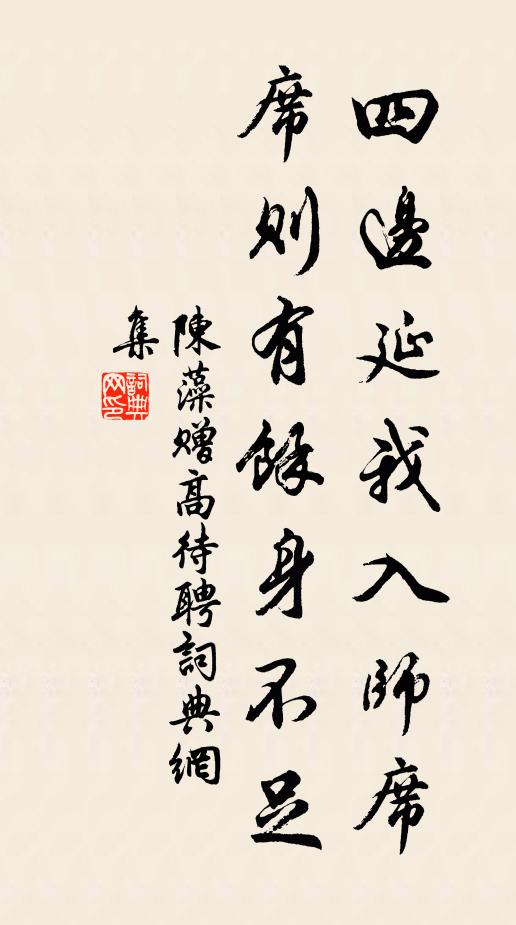 四邊延我入師席
席則有餘身不足
陳藻贈高待聘詞典網
集
詞典網印